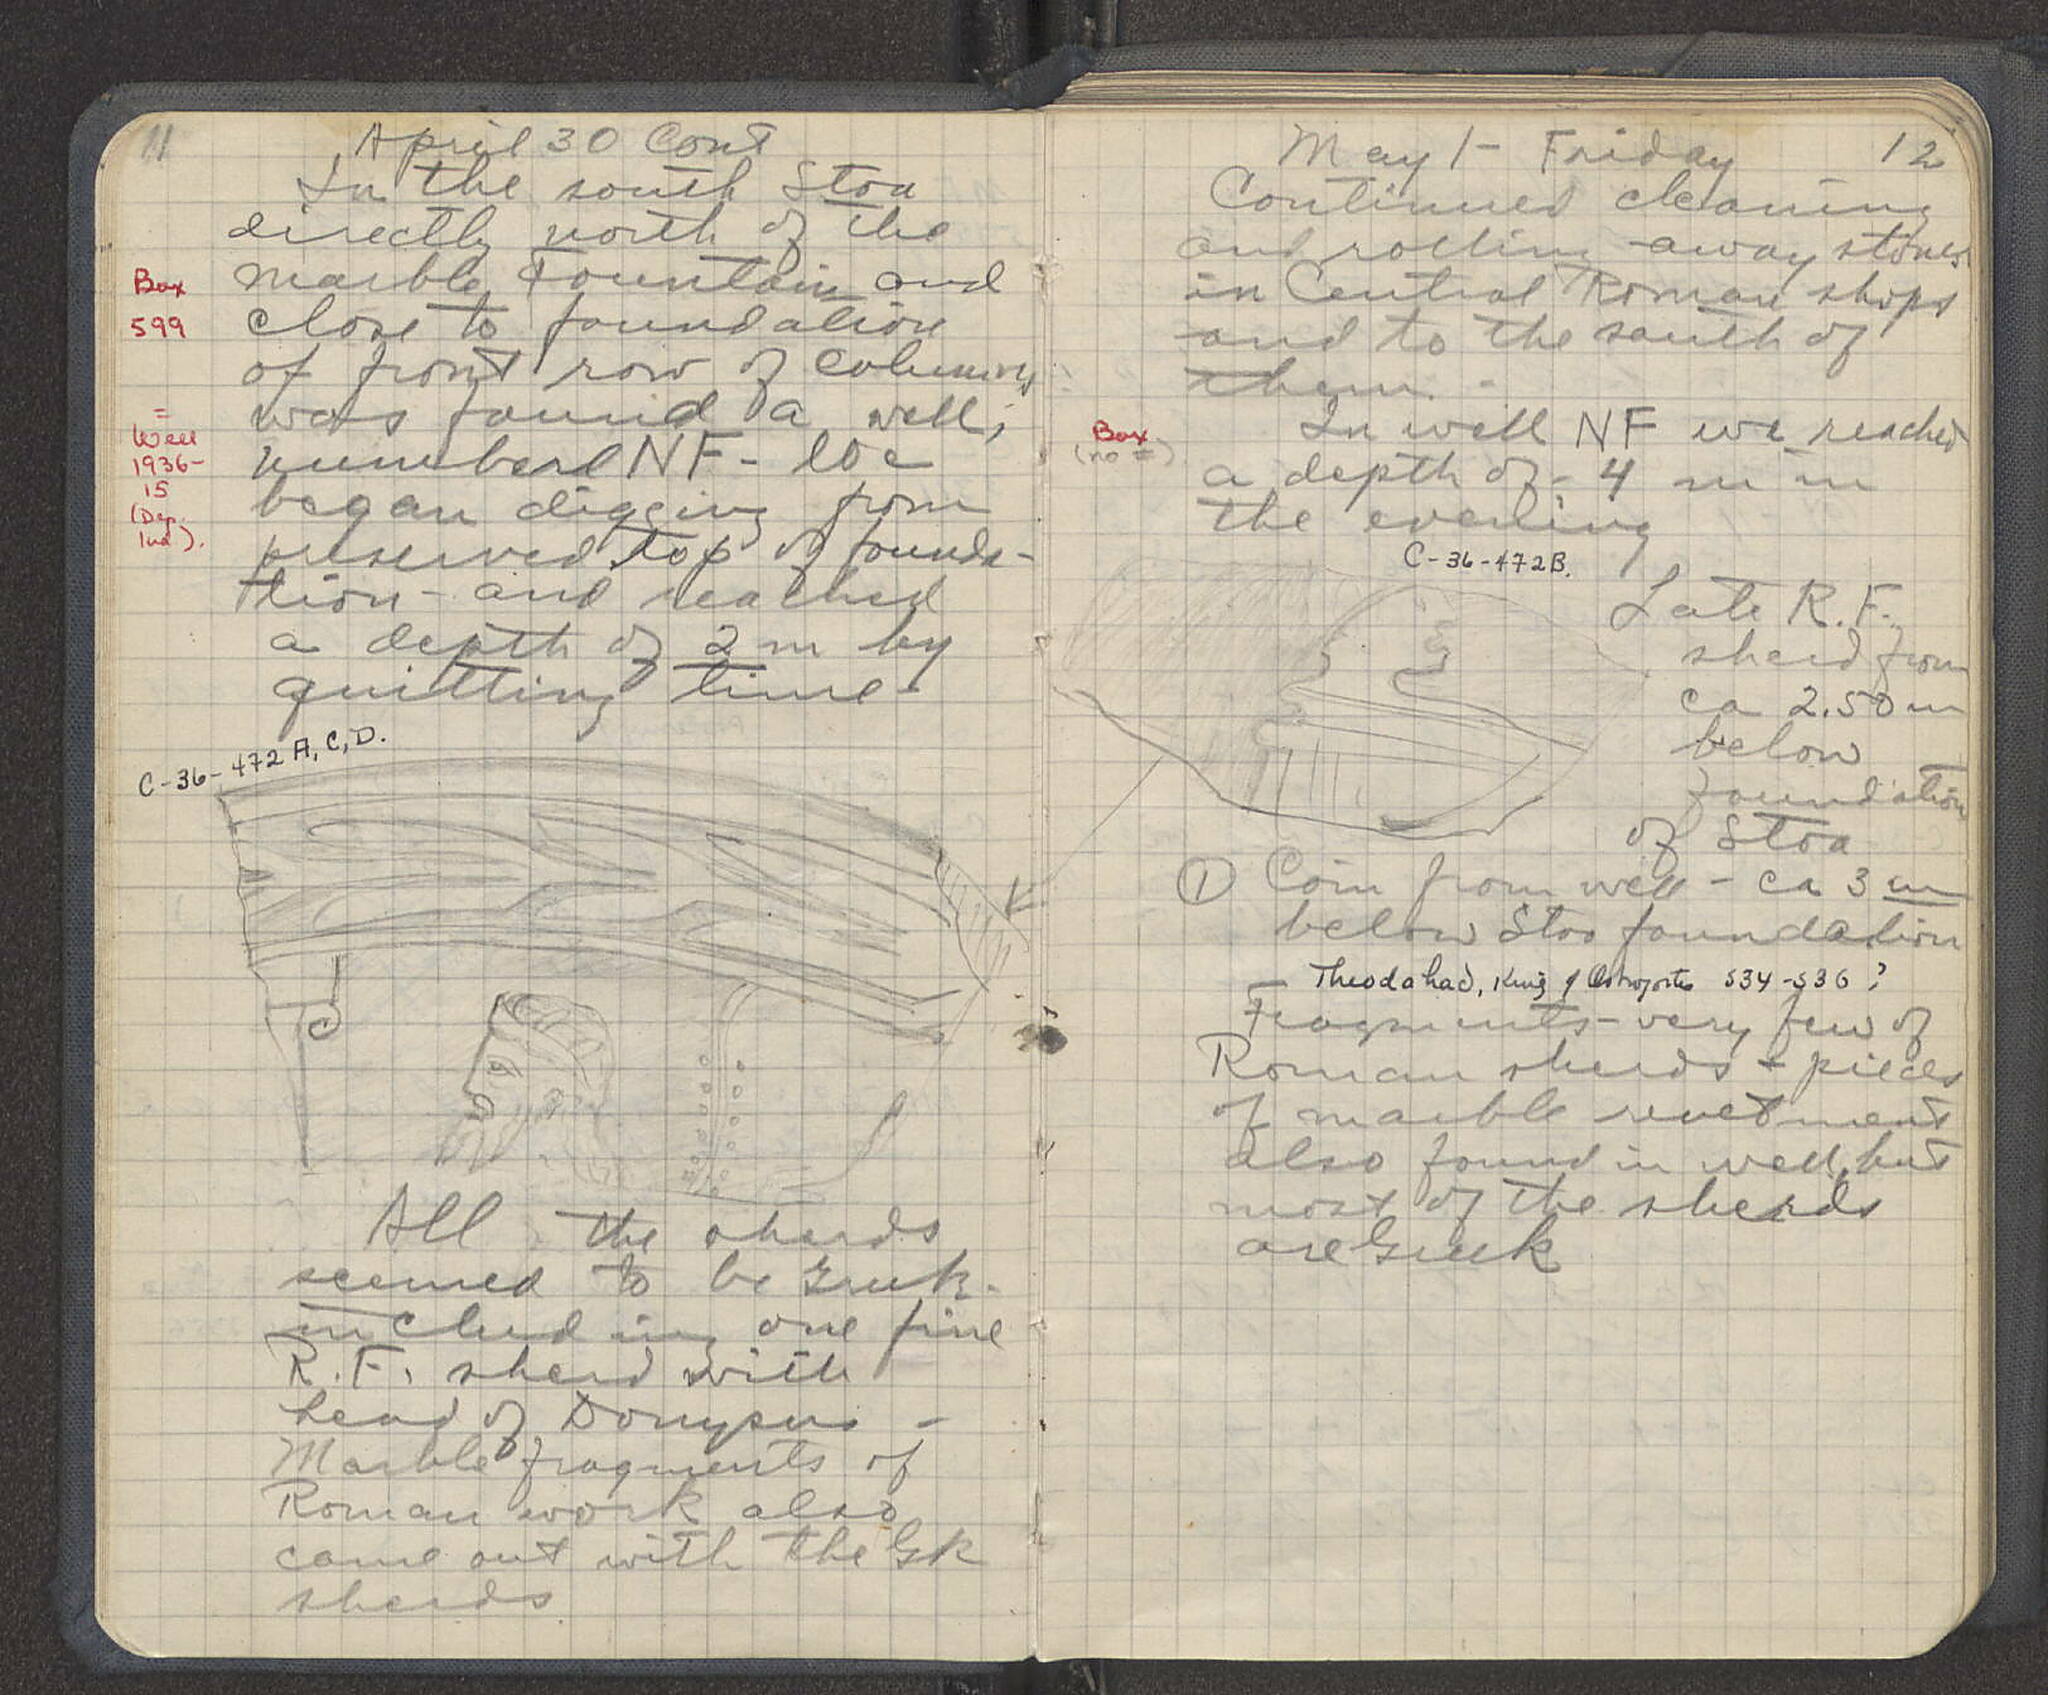 11
April 30 Cont
In the south Stoa
directly north of the
marble Fountain and
close to foundation
of front row of columns
was found a well,
numberd NF - We
began digging from
preserved top of founda-
tion - and reached
a depth of 2 m by
quitting time -
Box
599
=
Well
1936-
15
(Dep.
Ind).
C-36-472 A, C, D.
All the sherds
seemed to be Greek -
including one fine
R.F. sherd with
head of Donysus -
Marble fragments of
Roman work also
came out with the Gk
sherds
12
May 1 - Friday
Continued cleaning
and rolling away stones
in Central Roman shops
and to the south of
them -
Box
(no =)
In well NF we reached
a depth of - 4 m in
the evening
C-36-472B.
Late R.F.
sherd from
ca 2.50 m
below
foundation
of Stoa
① Coin from well - ca 3 m
below Stoa foundation
Theodahad, King of Ostrogoths 534-536?
Fragments - very few of
Roman sherds + pieces
of marble revetment
also found in well, but
most of the sherds
are Greek